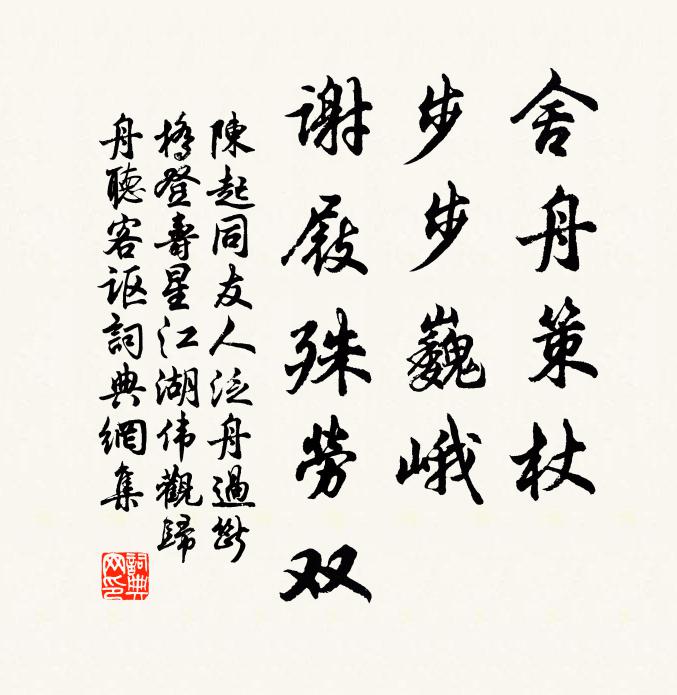 舍舟策杖
步步巍峨
谢屐殊劳双
陳起同友人泛舟過斷
橋登壽星江湖伟觀歸
舟聽客讴詞典網集
詞典网印